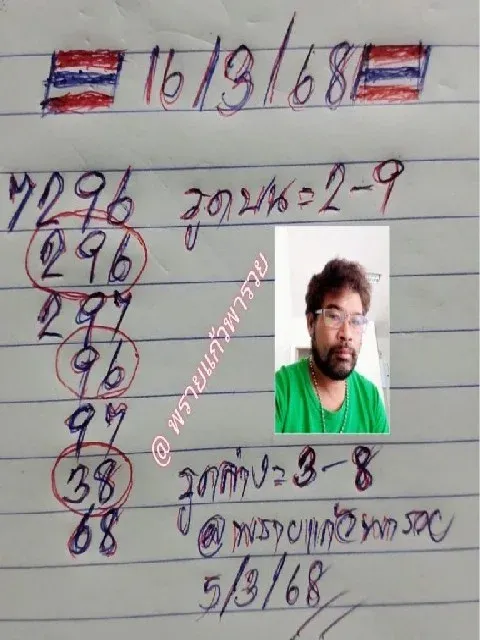 16/3/68
7296 รูดบน=2-9
296
297
@ พรายแก้วพารวย
96
97
38 รูดล่าง=3-8
68 @พรายแก้วพารวย
5/3/68